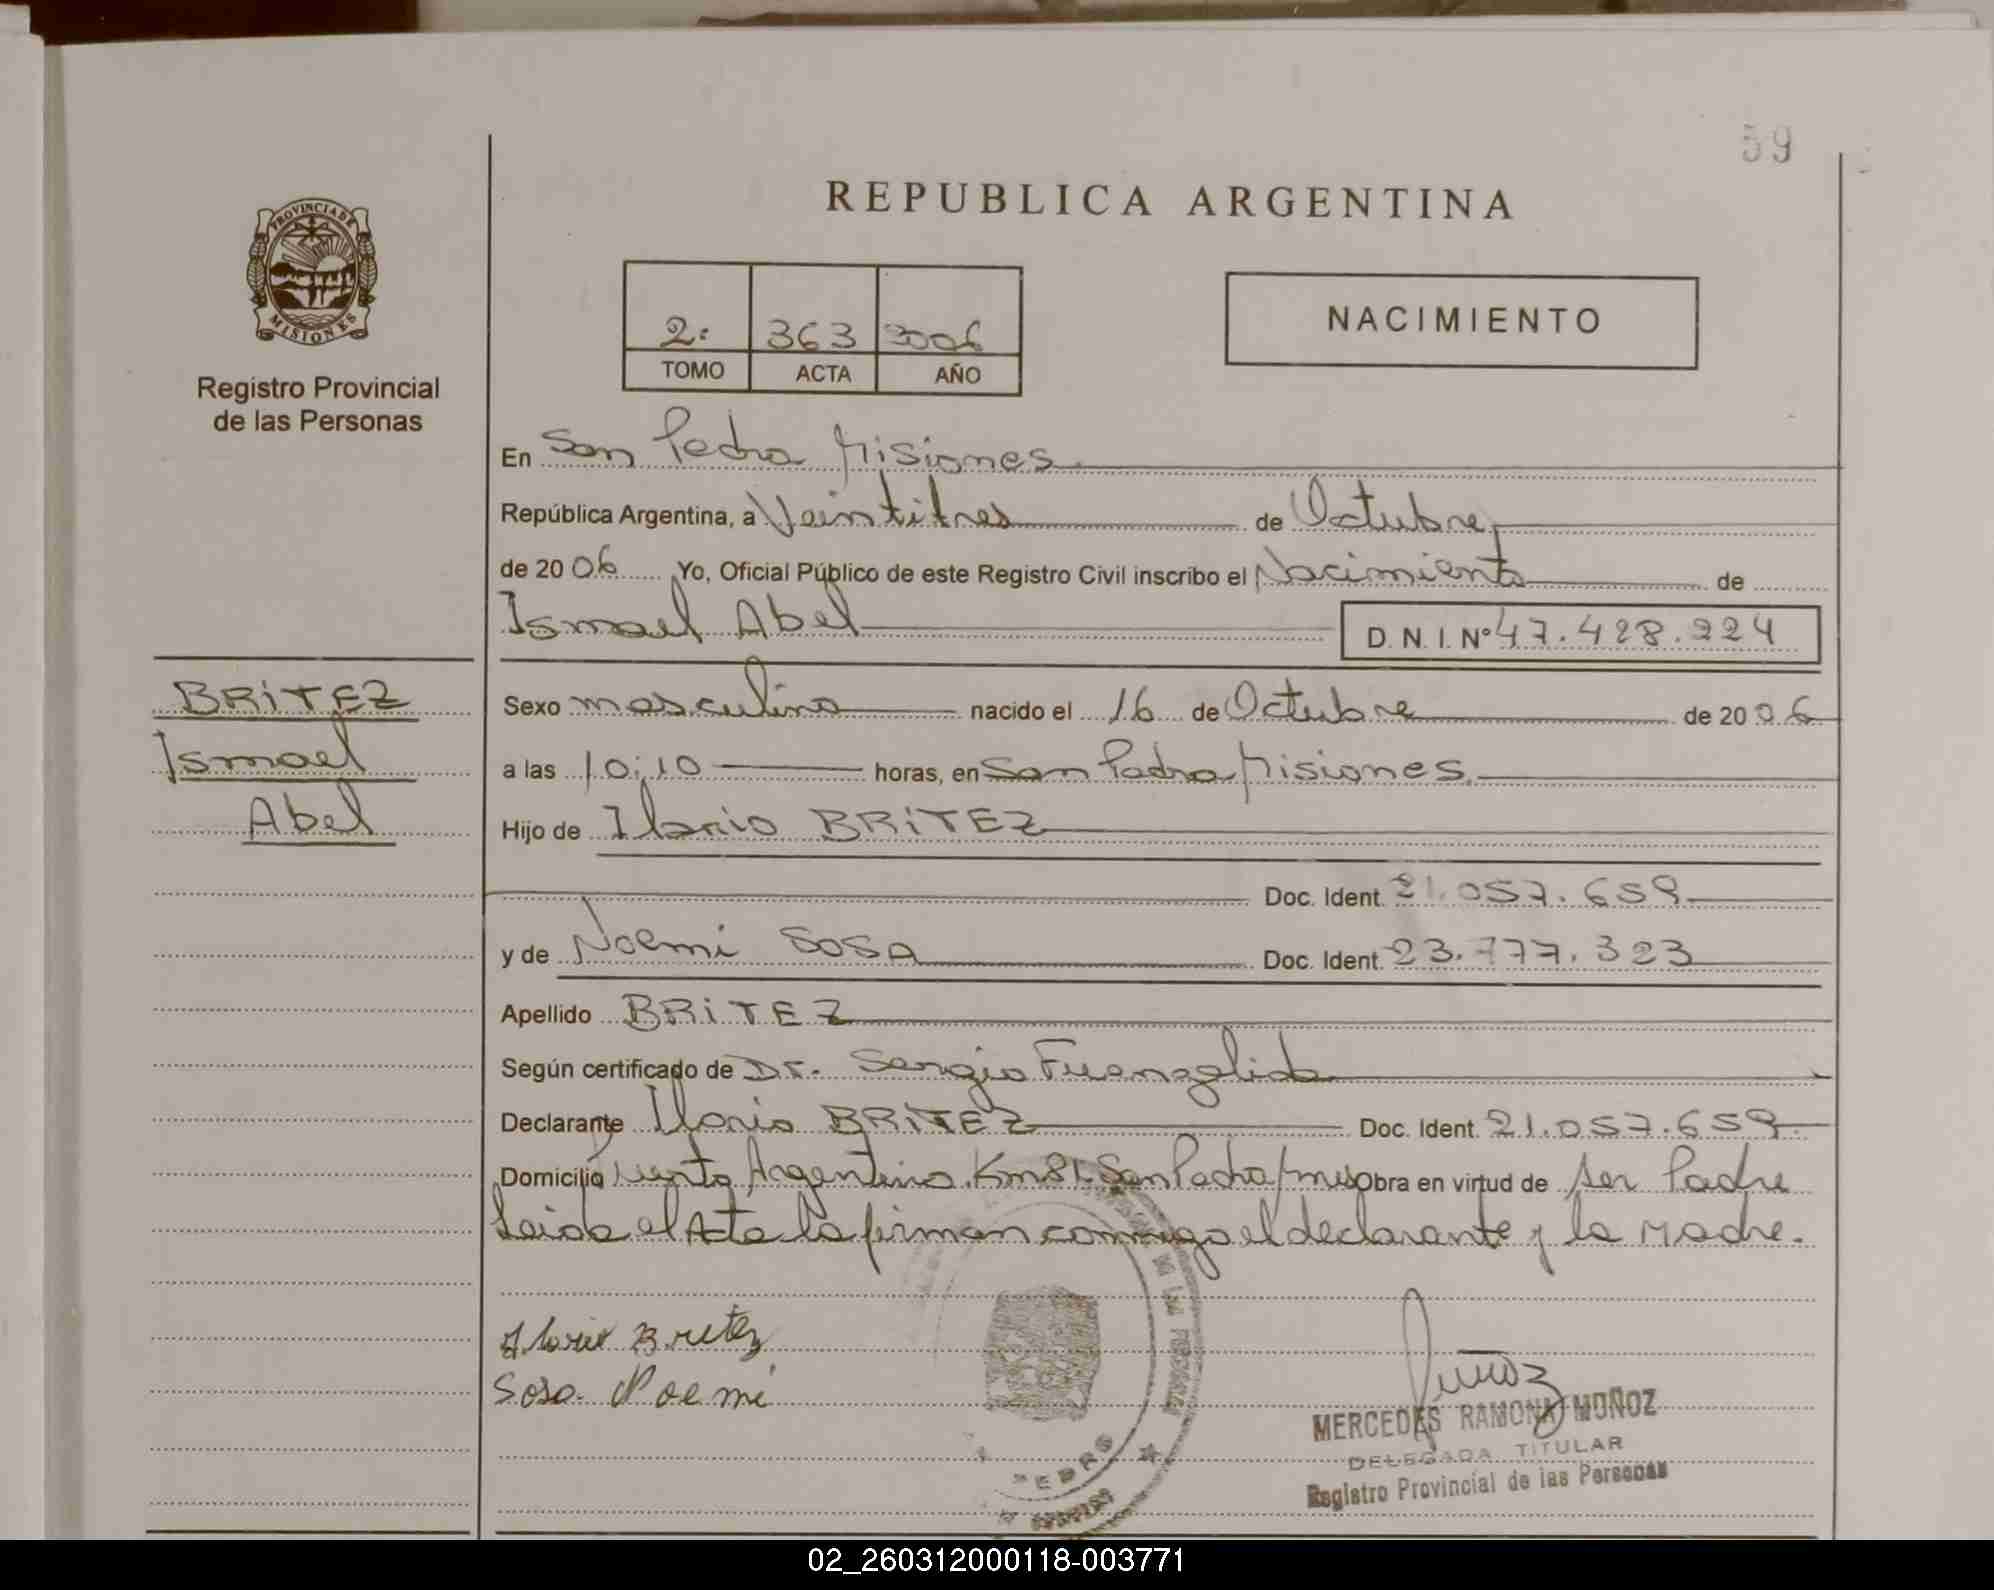 59
REPUBLICA ARGENTINA
PROVINCIA DE
MISIONES
Registro Provincial
de las Personas
2: 363 2006
TOMO ACTA AÑO
NACIMIENTO
En San Pedro Misiones
República Argentina, a Veintitres de Octubre
de 2006 Yo, Oficial Público de este Registro Civil inscribo el Nacimiento de
Ismael Abel D. N. I. Nº 47.428.224
BRITEZ
Ismael
Abel
Sexo masculino nacido el 16 de Octubre de 2006
a las 10:10 horas, en San Pedro Misiones
Hijo de Ilario BRITEZ
Doc. Ident. 21.057.659
y de Noemi SOSA Doc. Ident. 23.777.323
Apellido BRITEZ
Según certificado de Dr. Sergio Fuenzalida
Declarante Ilario BRITEZ Doc. Ident. 21.057.659
Domicilio Puerto Argentino Km 81 San Pedro Mnes Obra en virtud de ser Padre
Leida el Acta la firman conmigo el declarante y la Madre.
Ilario Britez
Sosa Noemi
Muñoz
MERCEDES RAMONA MUÑOZ
DELEGADA TITULAR
Registro Provincial de las Personas
02_260312000118-003771